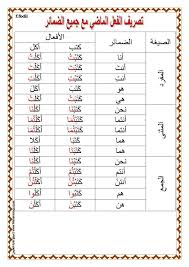 تصريف الفعل الماضي مع جميع الضمائر
الصيغة الضمائر الأفعال
كتب أكل
المفرد
أنا كتبت أكلت
أنت كتبت أكلت
أنت كتبت أكلت
هو كتب أكل
هي كتبت أكلت
المثنى
أنتما كتبتما أكلتما
هما كتبا أكلا
هما كتبتا أكلتا
الجمع
نحن كتبنا أكلنا
أنتم كتبتم أكلتم
أنتن كتبتن أكلتن
هم كتبوا أكلوا
هن كتبن أكلن